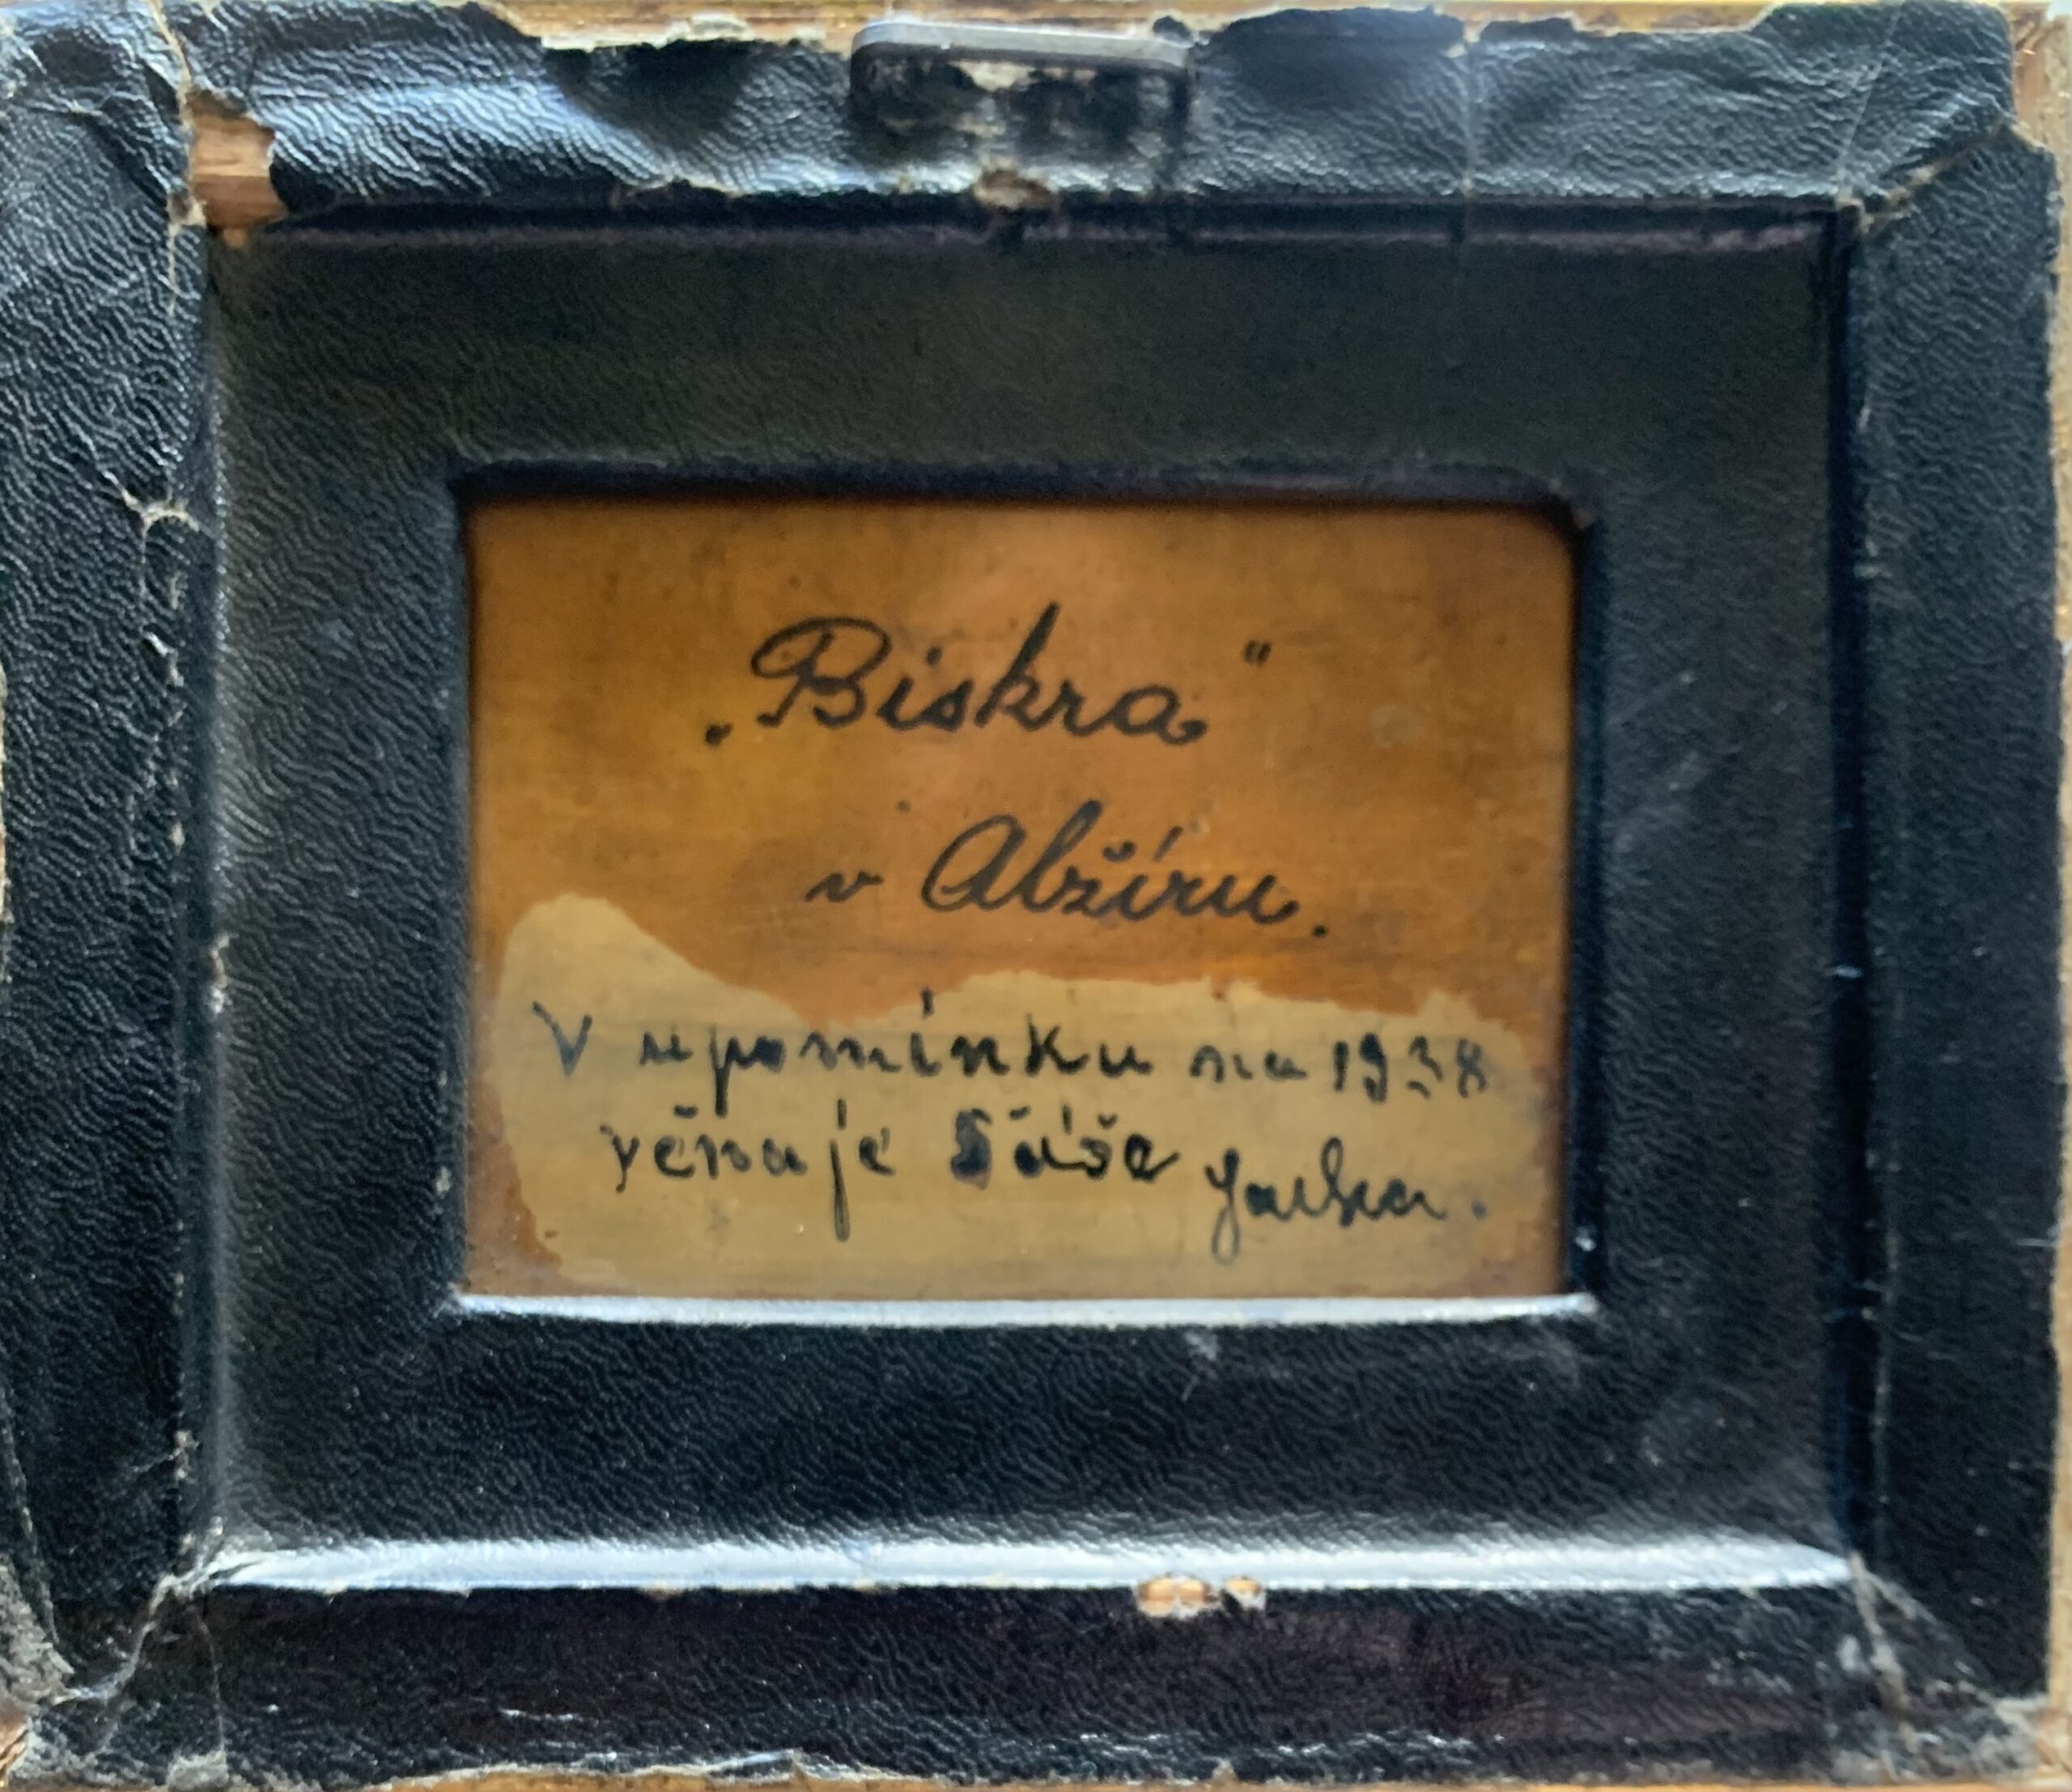 „Biskra“
v Alžíru.
V upomínku na 1938
věnuje Sáša